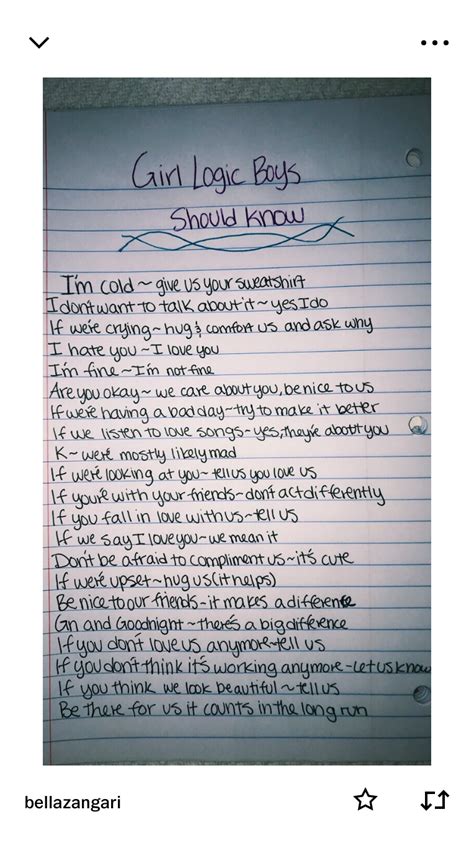 Girl Logic Boys
Should Know
I'm cold ~ give us your sweatshirt
I don't want to talk about it ~ yes I do
If we're crying ~ hug & comfort us and ask why
I hate you ~ I love you
I'm fine ~ I'm not fine
Are you okay ~ we care about you, be nice to us
If we're having a bad day ~ try to make it better
If we listen to love songs - yes, they're about you
K ~ we're mostly likely mad
If we're looking at you ~ tell us you love us
If you're with your friends - don't act differently
If you fall in love with us ~ tell us
If we say I love you ~ we mean it
Don't be afraid to compliment us ~ it's cute
If we're upset ~ hug us (it helps)
Be nice to our friends - it makes a difference
Gn and Goodnight ~ there's a big difference
If you don't love us anymore - tell us
If you don't think it's working anymore - let us know
If you think we look beautiful ~ tell us
Be there for us it counts in the long run
bellazangari